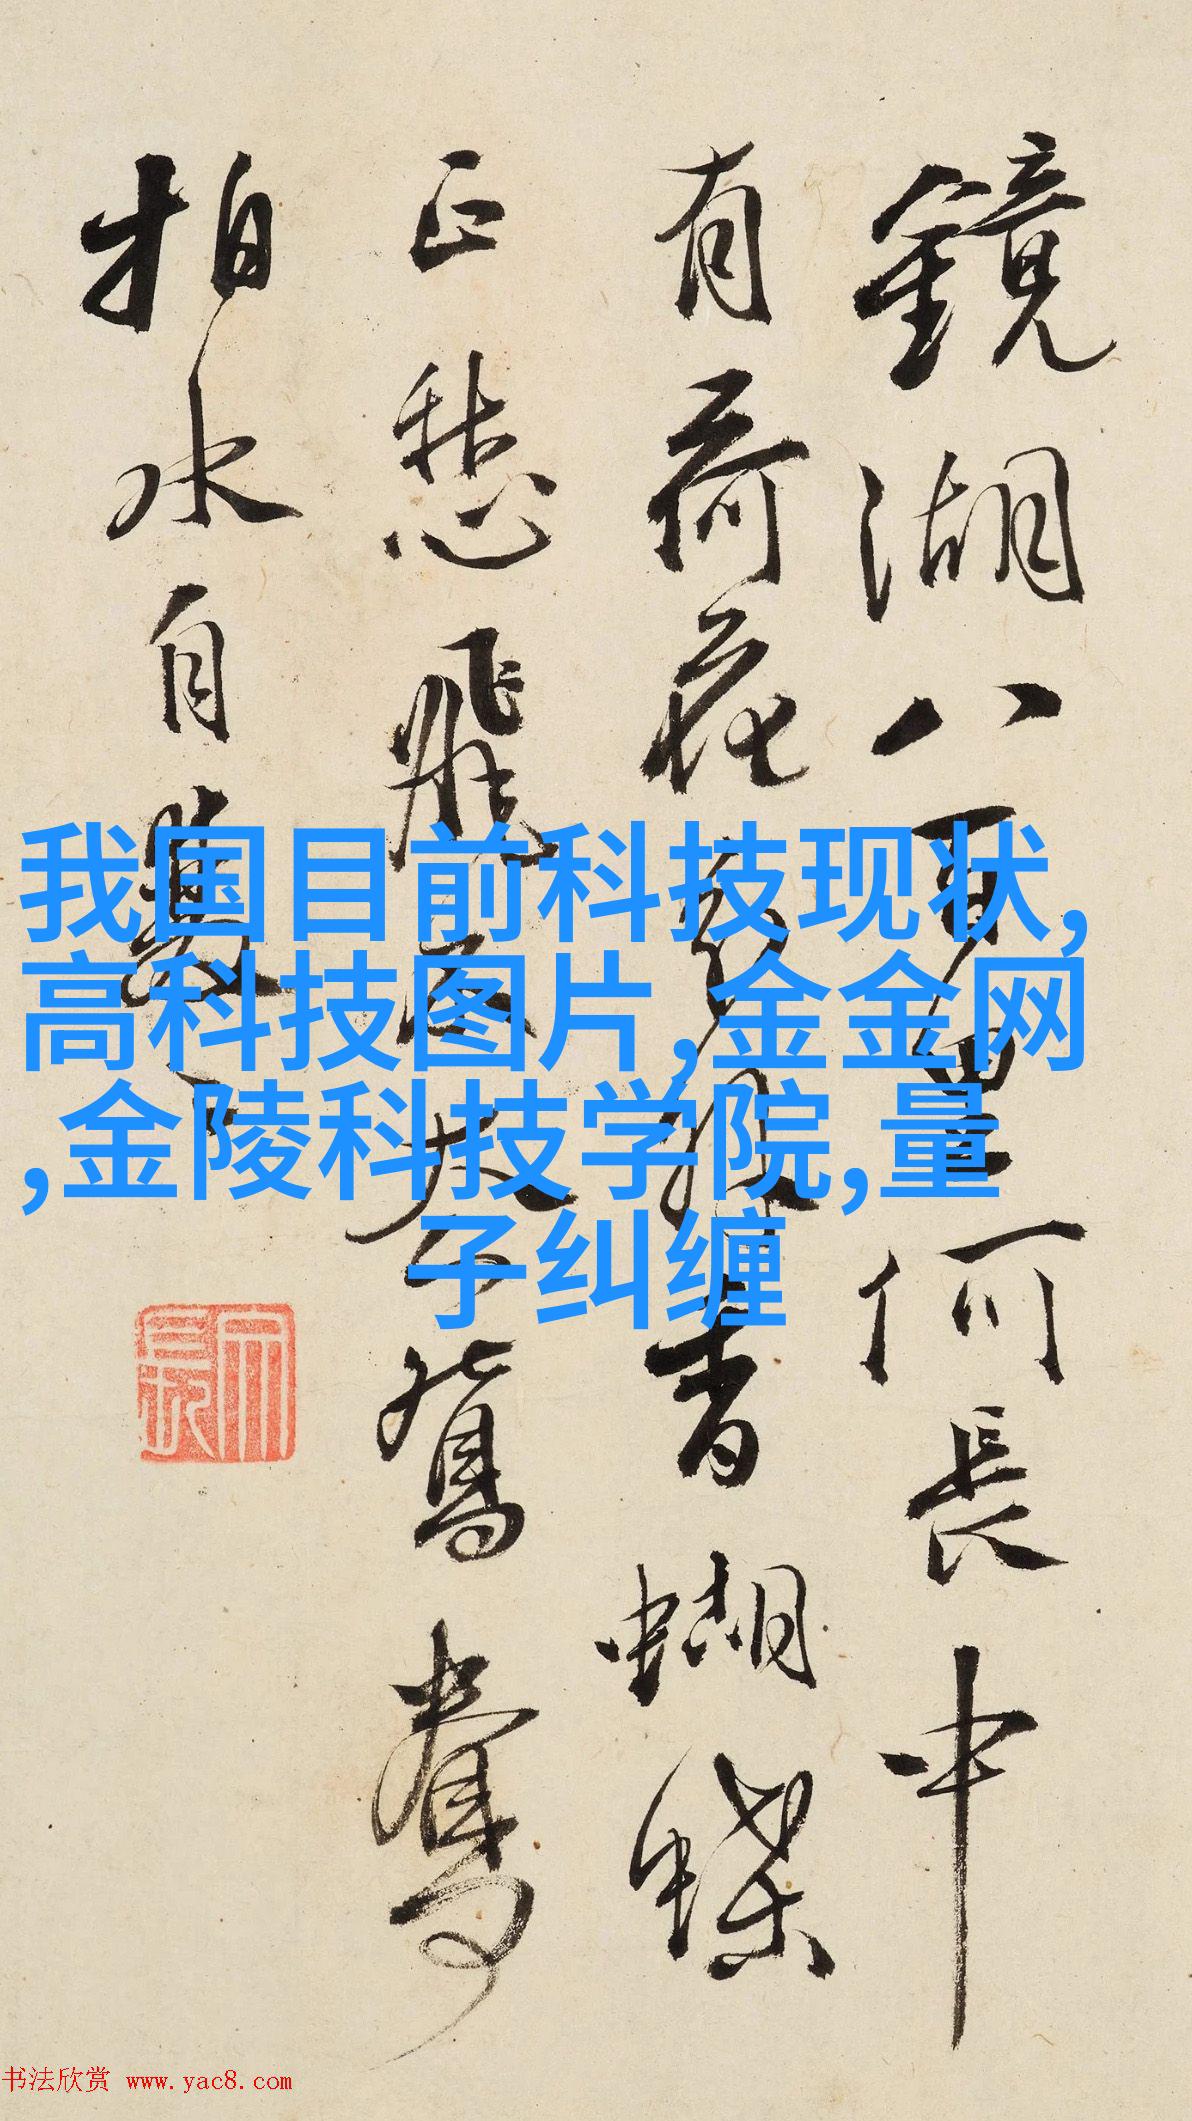 鏡湖八百里何長中
有荷花分外香蝴蝶
正愁飛不去鴛鴦
拍水自雙
我国目前科技现状,
高科技图片,金金网
,金陵科技学院,量
子纠缠
书法欣赏 www.yac8.com